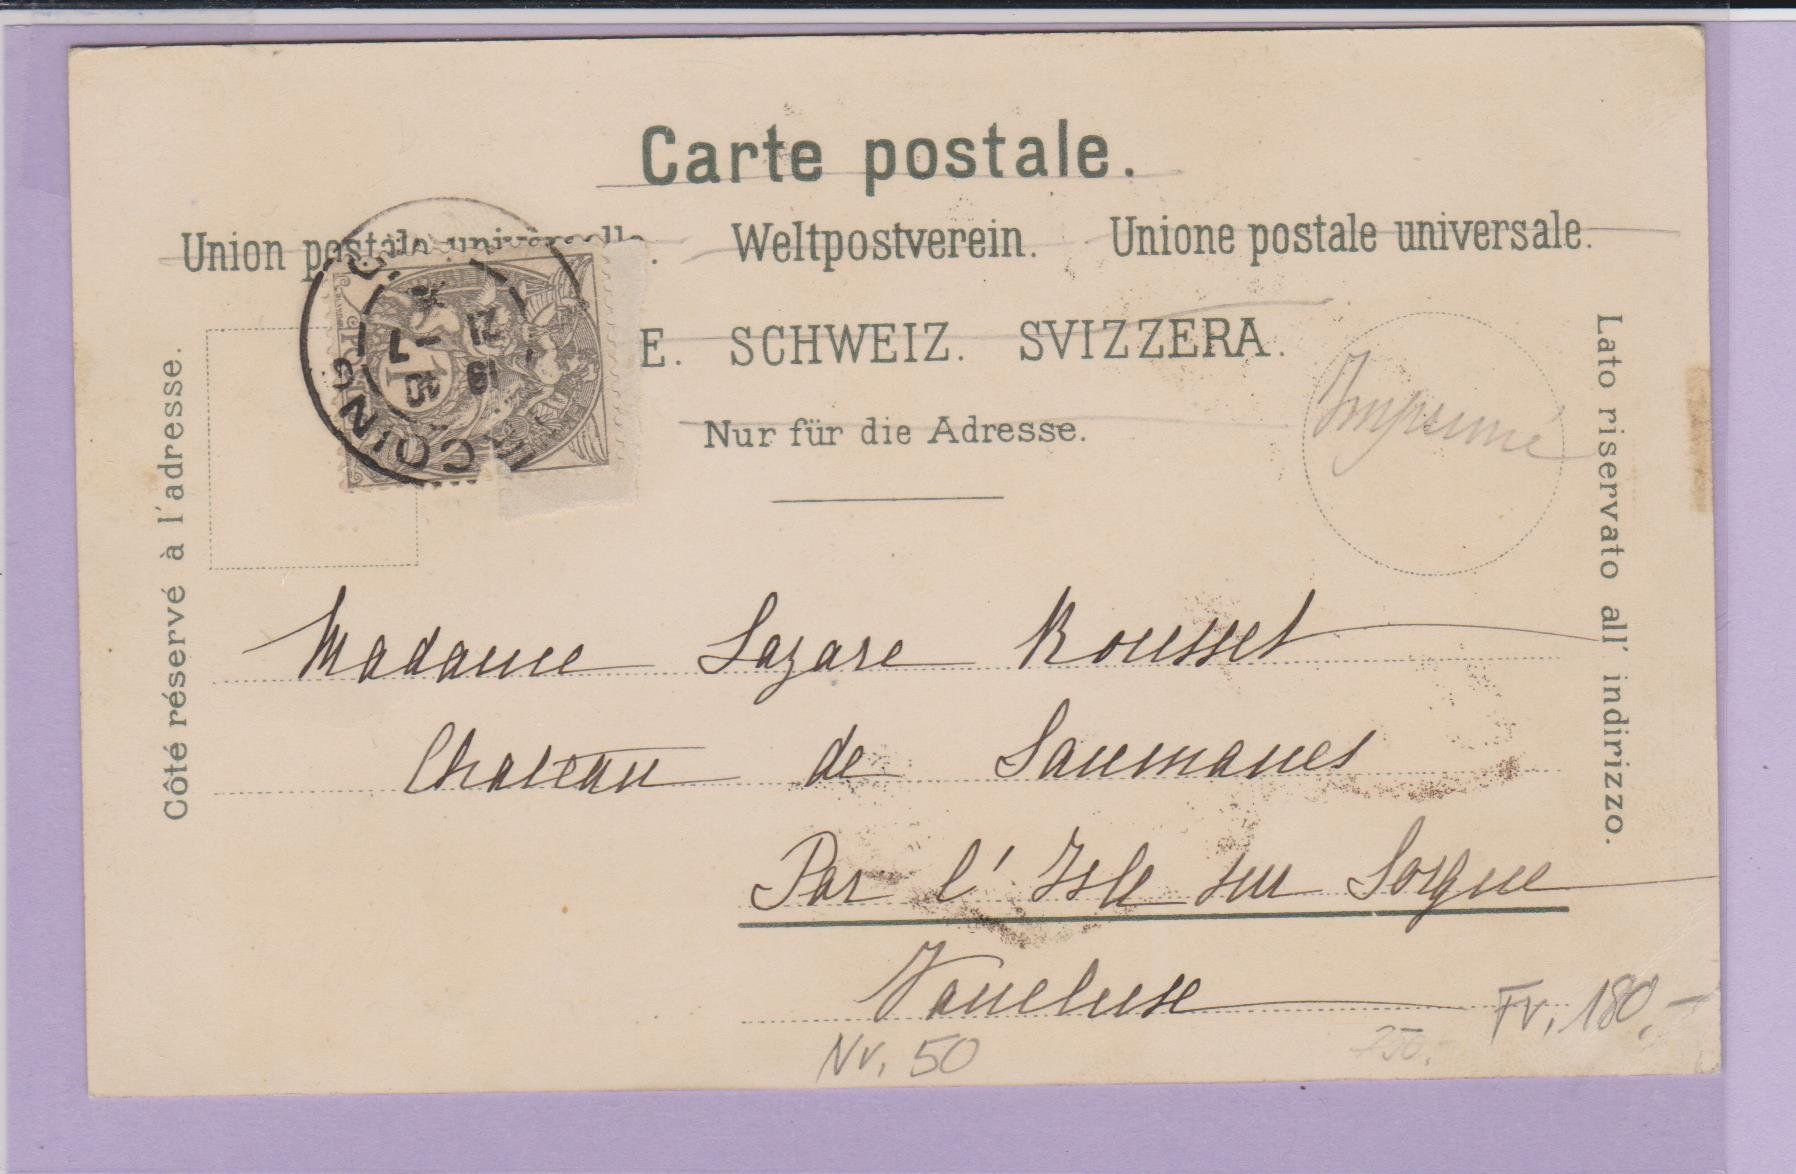 Carte postale.
Union postale universelle. Weltpostverein. Unione postale universale.
E. SCHWEIZ. SVIZZERA.
Nur für die Adresse.
Côté réservé à l'adresse.
Lato riservato all' indirizzo.
Imprimé
COING
21 -7
10
Madame Lazare Rousset
Chateau de Saumanes
Par l'Isle sur Sorgue
Vaucluse
Nr. 50
Fr. 180.-